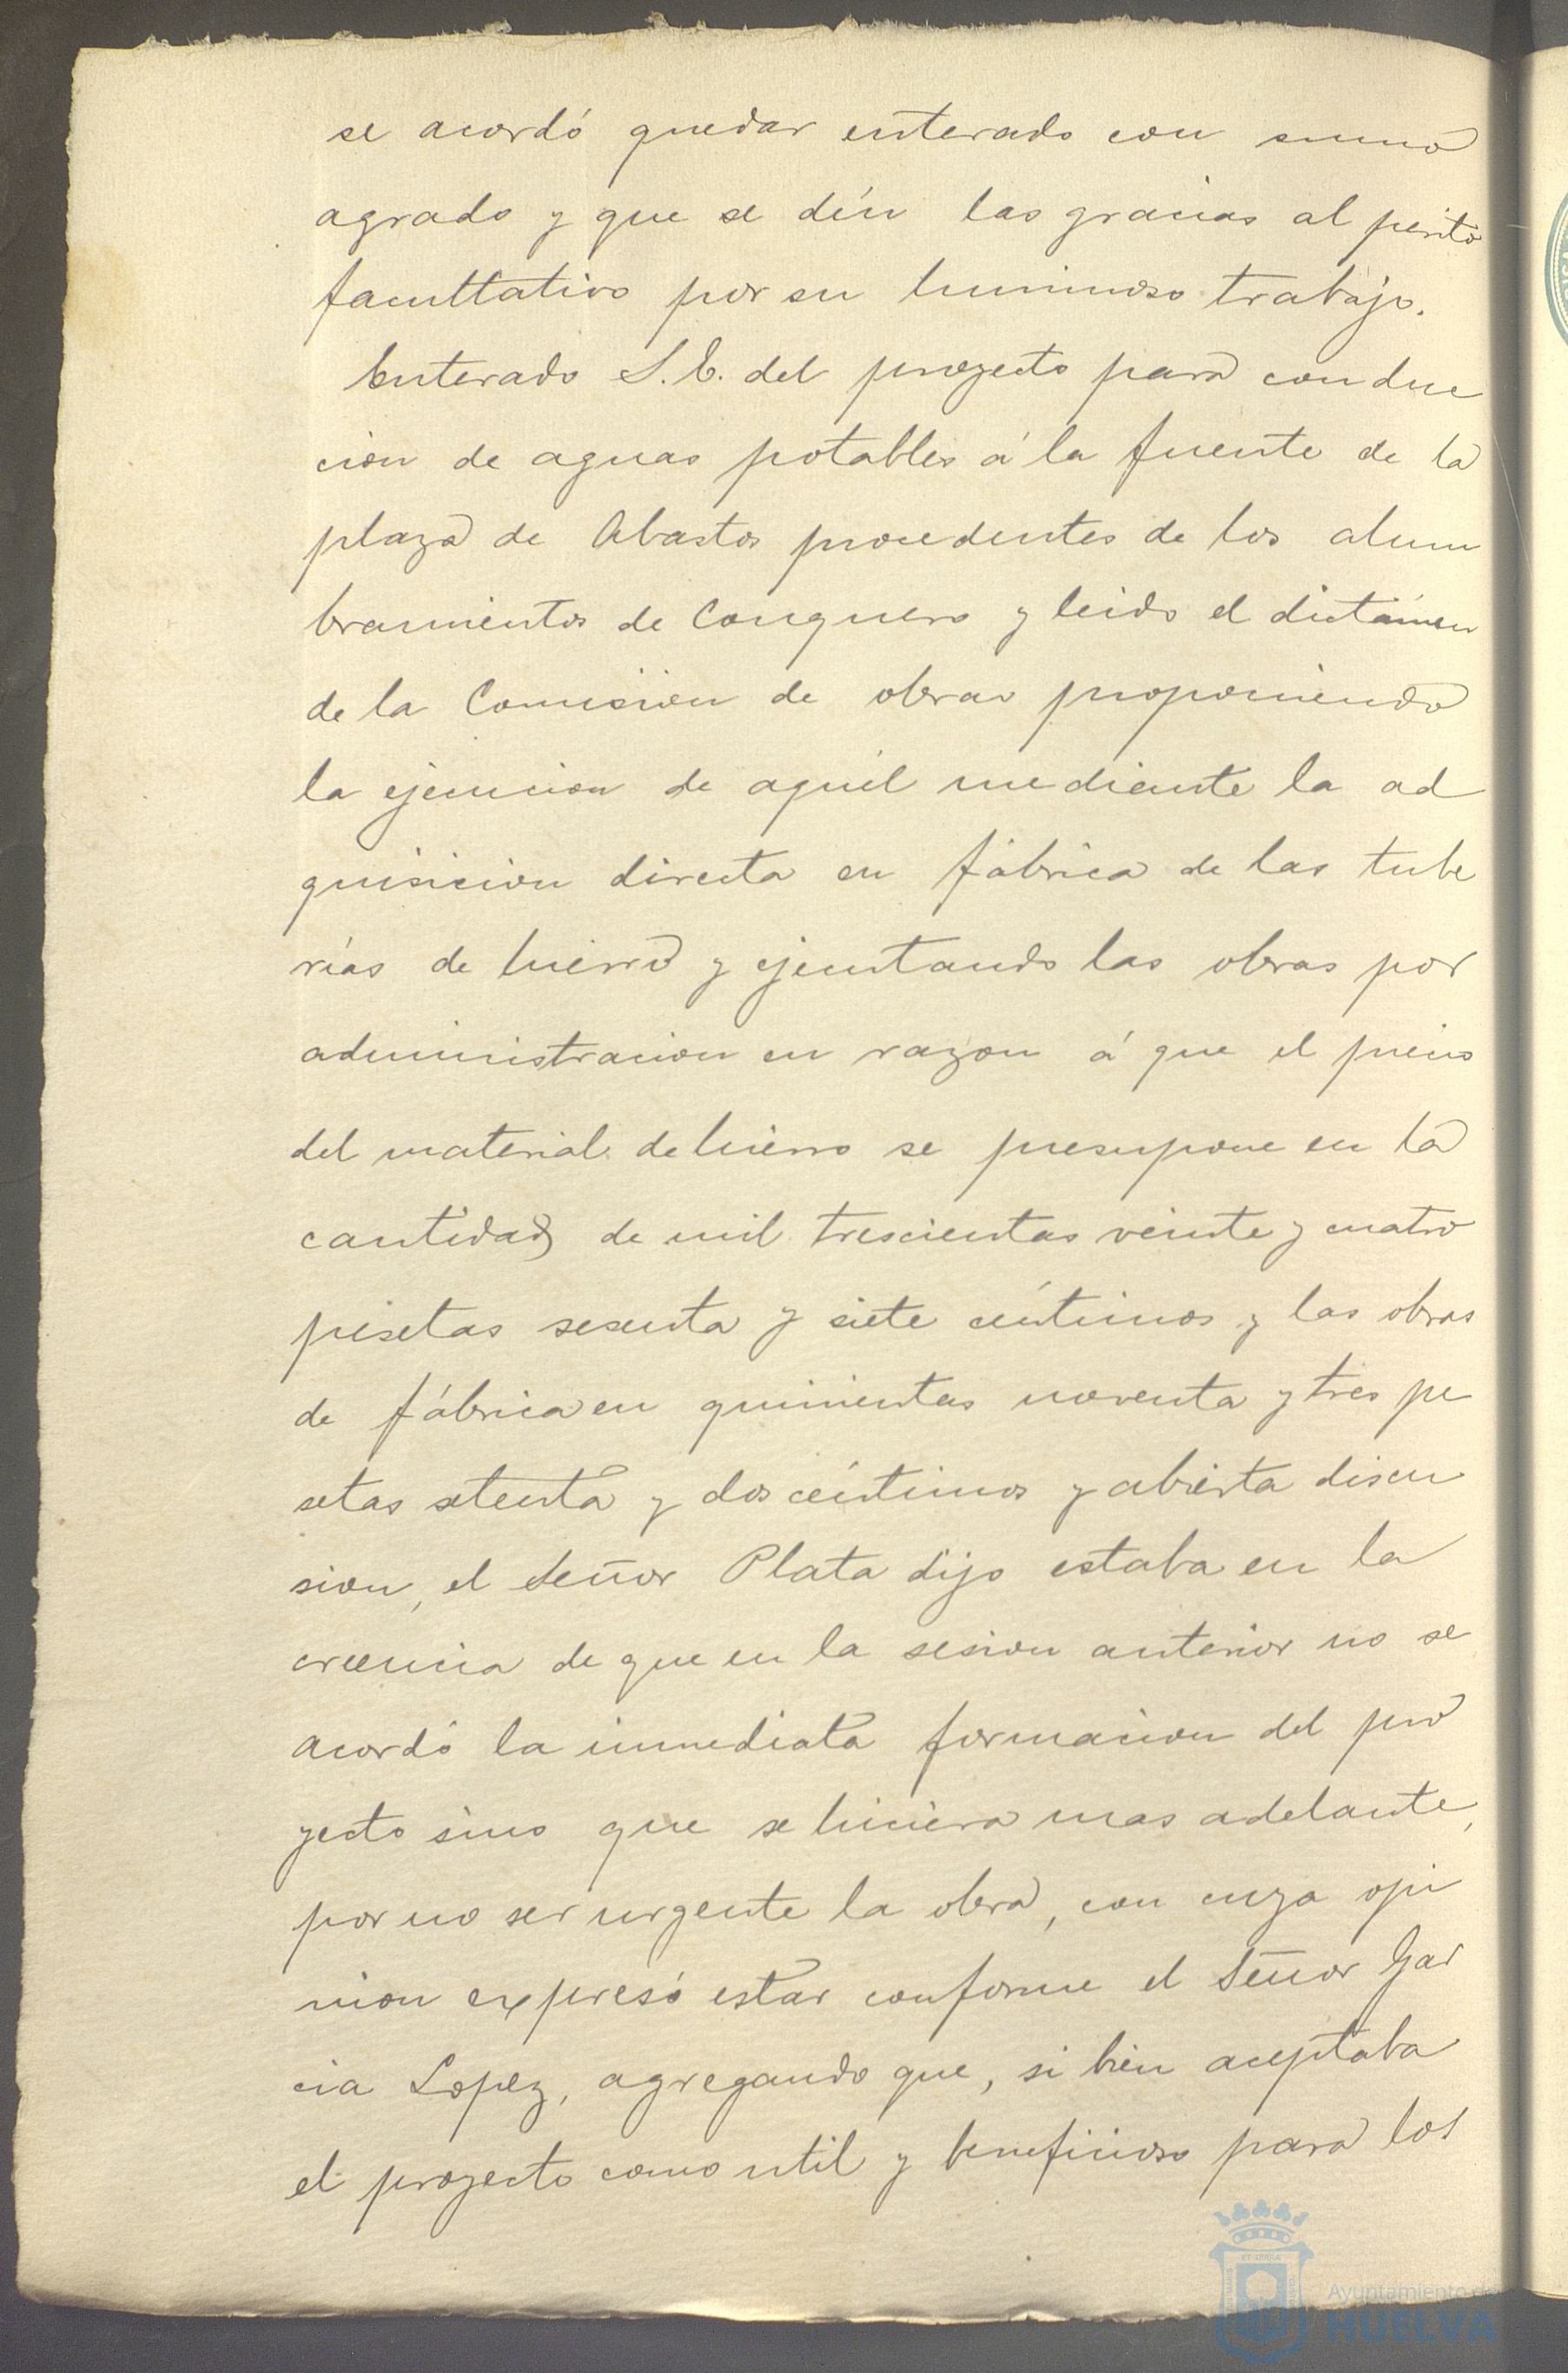 se acordó quedar enterado con sumo
agrado y que se dén las gracias al perito
facultativo por su luminoso trabajo.
Enterado S. E. del proyecto para conduc
cion de aguas potables á la fuente de la
plaza de Abastos procedentes de los alum
bramientos de Conquero y leido el dictámen
de la Comision de obras proponiendo
la ejecucion de aquél mediante la ad
quisicion directa en fábrica de las tube
rías de hierro y ejecutando las obras por
administracion en razon á que el precio
del material de hierro se presupone en la
cantidad de mil trescientas veinte y cuatro
pesetas sesenta y siete céntimos y las obras
de fábrica en quinientas noventa y tres pe
setas setenta y dos céntimos y abierta discu
sion, el Señor Plata dijo estaba en la
creencia de que en la sesion anterior no se
acordó la inmediata formacion del pro
yecto sino que se hiciera mas adelante,
por no ser urgente la obra, con cuya opi
nion expresó estar conforme el Señor Gar
cia Lopez, agregando que, si bien aceptaba
el proyecto como util y beneficioso para los
Ayuntamiento de
HUELVA